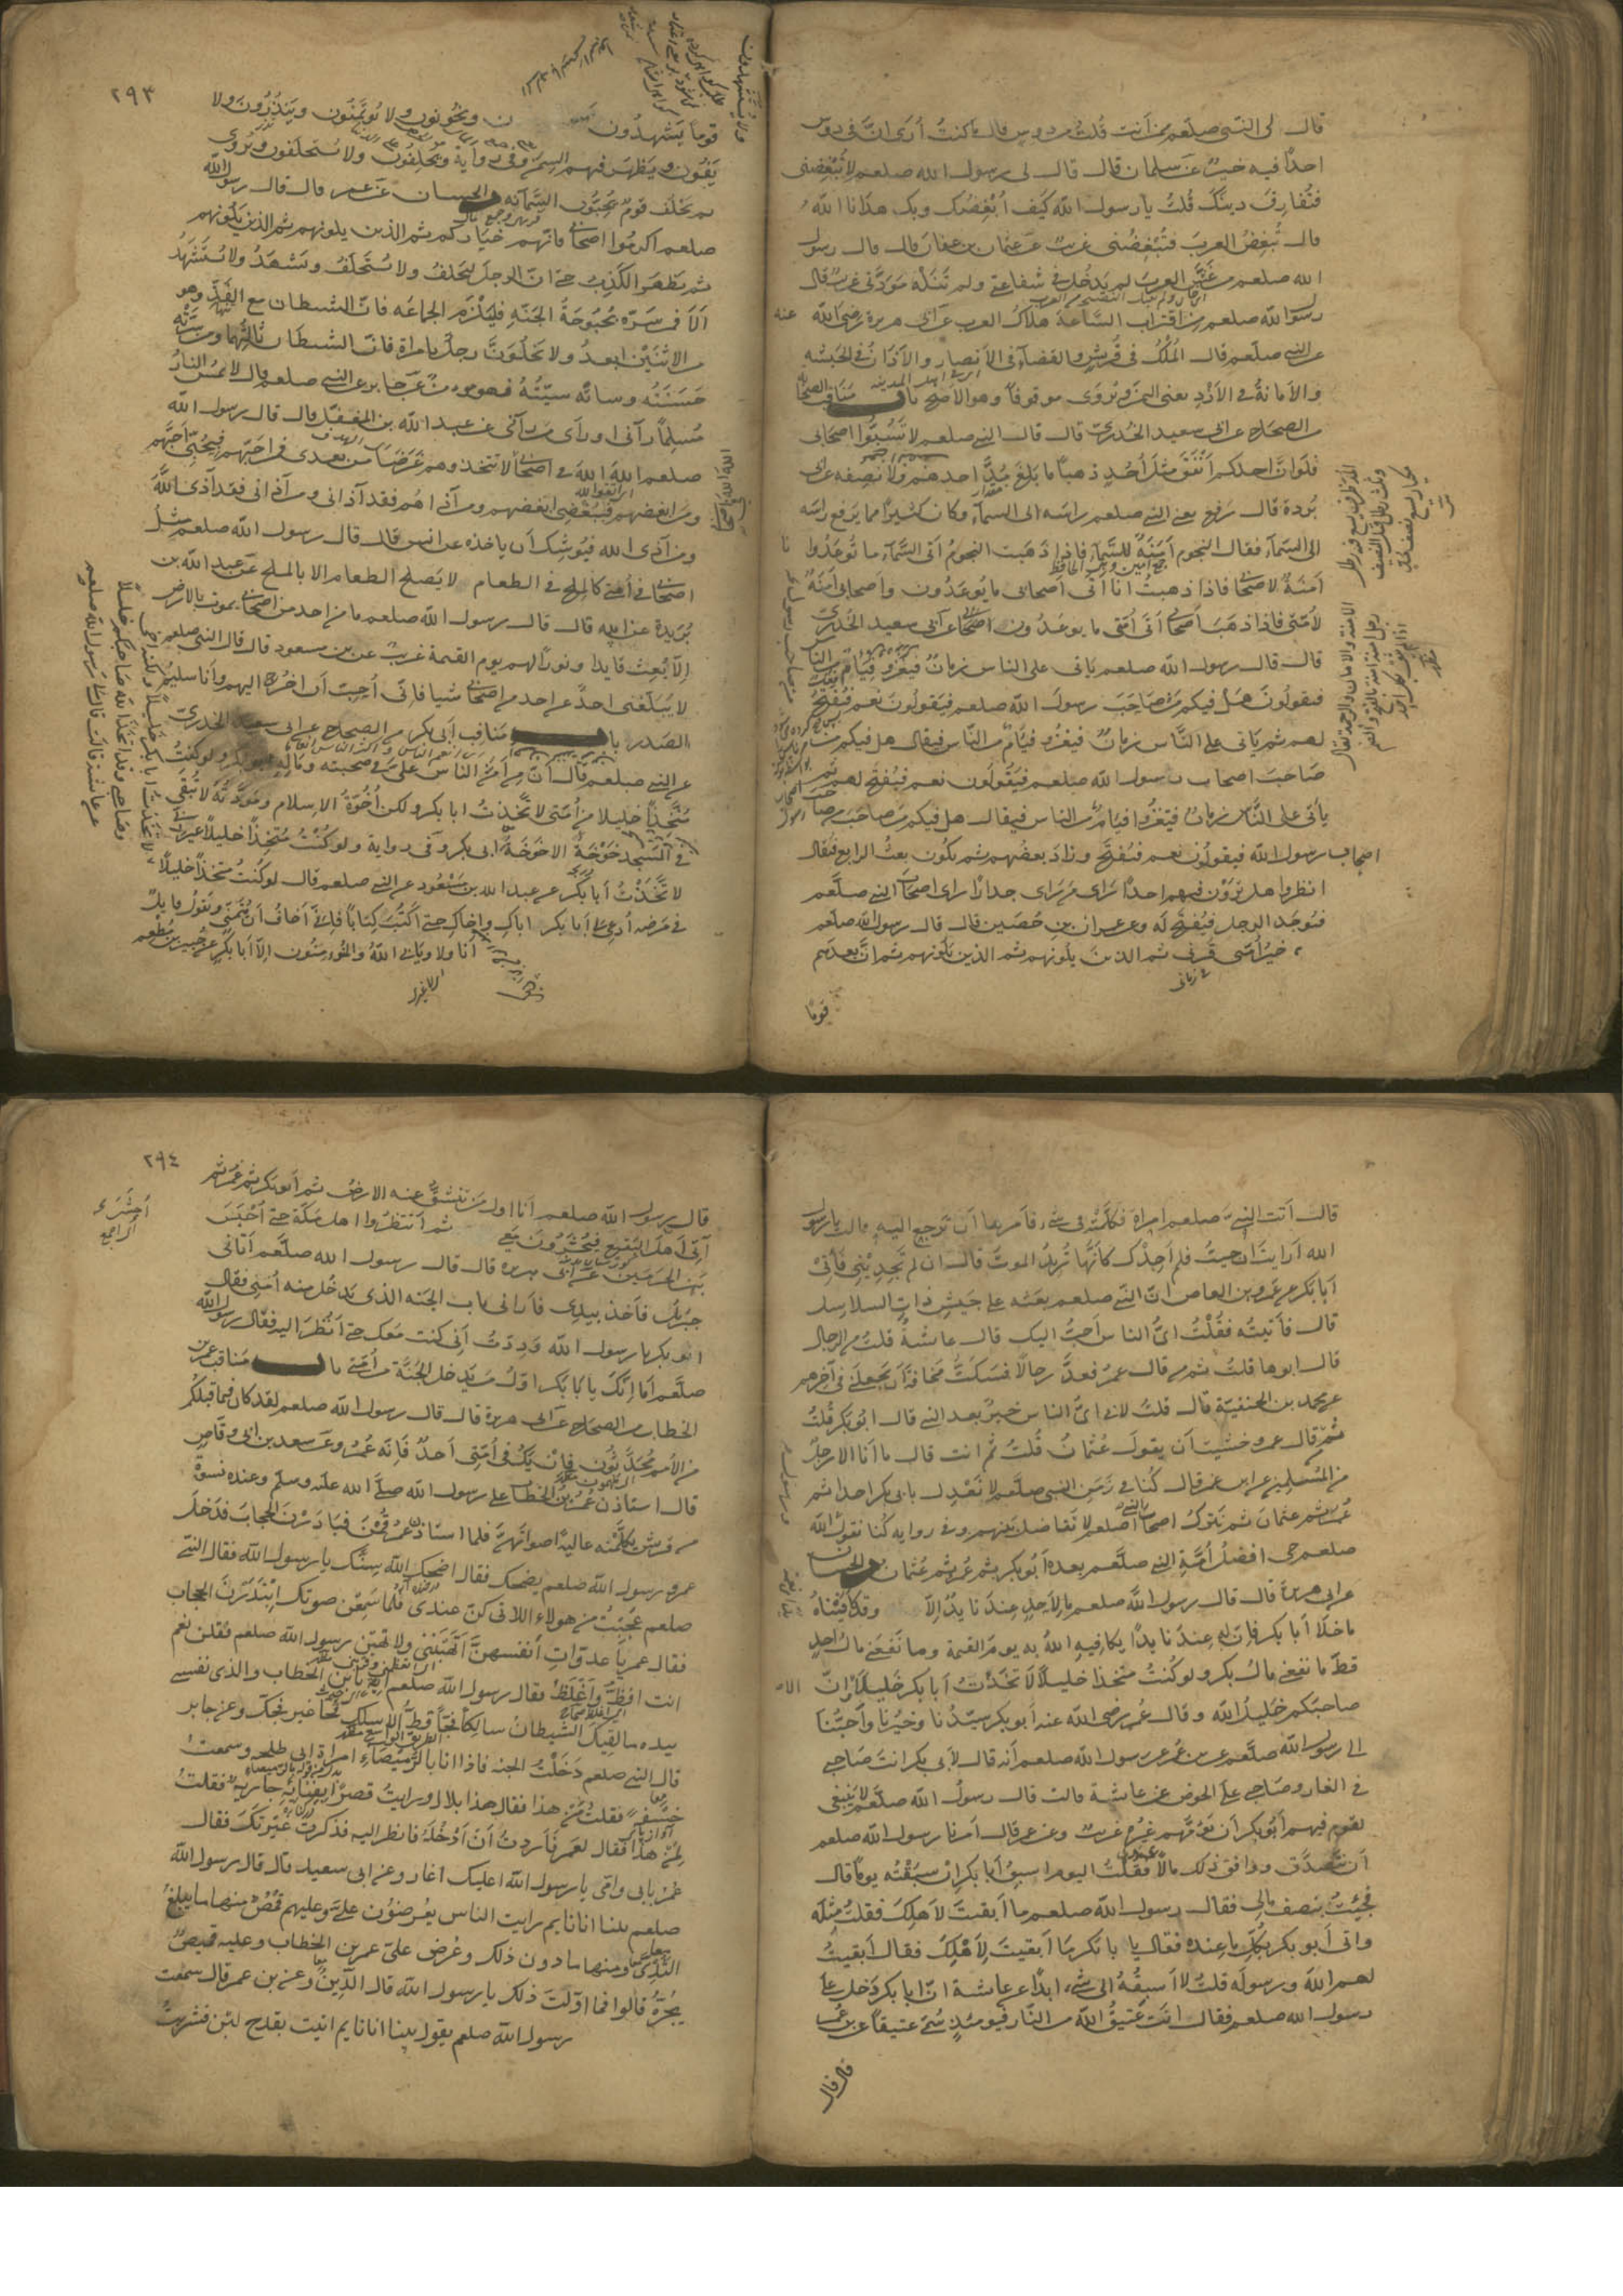 قال لى النبى صلعم ممن أنت قُلتُ من دوس قال ما كنتُ أُرى انَّ فى دوس
احداً فيه خير عن سلمان قال قال لى رسول الله صلعم لا تُبغِضنى
فتُفارِقَ دينَك قُلتُ يا رسول اللّه كَيفَ أُبْغِضُكَ وبك هدانا اللّه
قال تُبغِضُ العربَ فتُبْغِضُنى غريب عن عثمان بن عفان قال قال رسول
الله صلعم من غَشَّ العربَ لم يَدخُل فى شفاعتى ولم تَنَلْه مَوَدَّتى غريب قال
رسول اللّه صلعم من اقتراب السَّاعة هلاكُ العرب عن أبى هريرة رضى اللّه عنه
عن النبى صلعم قال المُلْكُ فى قُريشٍ والقضآء فى الأنصار والأذانُ فى الحبشه
والأمانةُ فى الأَزْدِ يعنى اليمن ويُروَى موقوفاً وهو الاصح باب مَناقب الصحابة
من الصحاح عن ابى سعيد الخُدرىّ قال قال النبى صلعم لا تَسُبُّوا اصحابى
فلَوانَّ احدكم أَنْفَقَ مثلَ أُحُدٍ ذهباً ما بَلَغَ مُدَّ احدهم ولا نصيفه عن ابى
بُردة قال رفع يعنى النبى صلعم راسَه الى السمآء وكان كثيراً مما يرفع راسَه
الى السمآء فقال النجوم أَمَنَةٌ للسَّمآء فاذا ذَهَبت النجومُ أتى السَّمآء ما تُوعَدُ وانا
أمَنَةٌ لاصحابى فاذا ذهبتُ انا أتى أصحابى ما يُوعَدُون واصحابى أمَنَةٌ
لأُمّتى فاذا ذهَبَ أصحابى أتى أُمَّتى ما يوعَدُون عن أبى سعيد الخُدرىّ
قال قال رسول اللّه صلعم يأتى على الناس زمانٌ فيَغزُو فِئامٌ من الناس
فيقولُونَ هَلْ فيكم مَن صَاحَبَ رسولَ اللّه صلعم فيَقولُونَ نعم فيُفْتَحُ
لهم ثم يأتى على النَّاس زمانٌ فيغزُو فِئامٌ من النَّاس فيقال هل فيكم من
صَاحَبَ اصحابَ رسول اللّه صلعم فيَقُولُون نعم فيُفتح لهم ثم
يأتى على النَّاس زمانٌ فيَغْزُوا فِئامٌ من الناس فيقال هل فيكم مَن صاحَبَ من صاحب
اصحاب رسول اللّه فيقولُون نعم فيُفتَح وزادَ بعضُهم ثم يكُون بعثُ الرابع فيُقال
انظروا هل تَرَوْن فيهم احداً رَاى مَن رَاى احداً راى اصحابَ النبى صلَّعم
فيُوجَد الرجل فيُفتح لَه وعن عمران بن حُصَين قال قال رسول اللّه صلعم
خيرُ أُمَّتى قَرنى ثم الذينَ يلُونهم ثم الذين يَلُونهم ثم انَّ بعدَهم
فى زمانى
قومًا
٢٩٣
قوماً يَشهدُون ولا يُستشهدون ويخُونون ولا يُؤتَمَنُون ويَنذُرُونَ ولا
يَفُونَ ويَظهَر فيهم السِمَن وفى رواية ويَحْلِفُون ولا يُستَحلَفون ويُروى
ثم يَخلُف قومٌ يُحِبُّون السَّمانَة والحسان عن عمر قال قال رسول اللّه
صلعم اكرمُوا اصحابى فانّهم خيَارُكم ثم الذين يلونهم ثم الذين يَلُونهم
ثم يَظهَر الكَذِبُ حتى انّ الرجلَ ليَحلفُ ولا يُستَحلَفُ ويَشهَدُ ولا يُستَشهَدُ
ألَا فمن سَرّه بُحبُوحَةُ الجَنّه فليَلْزَم الجماعَه فانّ الشيطان مع الفَذِّ وهو
من الاثنَيْن ابعدُ ولا يَخلُوَنَّ رجلٌ بامراة فانّ الشيطان ثالثُهما ومن سَرَّته
حَسَنَتُه وسائته سيّئتُهُ فهو مومنٌ عن جابر عن النبى صلعم قال لا تمسّ النارُ
مُسلِماً رآنى او رأى من رآنى عن عبد اللّه بن المُغفّل قال قال رسول اللّه
صلعم اللّهَ اللّهَ فى اصحابى لا تتخذوهم غَرَضاً من بعدى فمن احَبّهم فبحُبّى احَبَّهم
ومن ابغضهم فببُغْضى ابغضهم ومن آذاهُم فقد آذانى ومن آذانى فقد آذى اللّهَ
ومن آذى اللّه فيُوشِك أن ياخذه عن انس قال قال رسول اللّه صلعم مَثَل
اصحابى فى أُمتى كالمِلح فى الطعام لا يَصلح الطعام الا بالملح عن عبد اللّه بن
بُرَيدة عن ابيه قال قال رسول اللّه صلعم ما من احد من اصحابى يموت بالارض
الّا بُعِثَ قايدا ونوراً لهم يوم القيمة غريب عن بن مسعود قال قال النبى صلعم
لا يُبَلّغنى احدٌ عن احد من اصحابى شيا فانّى أُحِبّ أن اخرُجَ اليهم وأنا سليم
الصَدر باب مَناقب أبى بكر من الصحاح عن ابى سعيد الخدرىّ
عن النبى صلعم قال انّ من أمَنّ الناس علىّ فى صحبته ومَالِه ابو بكر ولو كنتُ
مُتَّخِذاً خليلا من أُمّتى لاتّخذتُ ابا بكر ولكن أُخُوَّةُ الاسلام ومَودَّتُه لا تُبْقَى
فى المَسجد خَوْخَةٌ الا خَوْخَةُ ابى بكر وفى رواية ولو كُنْتُ مُتّخِذاً خليلا غير ربى
لاتَّخَذْتُ أبا بكر عن عبد اللّه بن مَسعُود عن النبى صلعم قال لو كُنتُ متخذاً خليلًا
فى مَرَضه أدعِى لى أبا بكر اباكِ واخاكِ حتى أَكتُبَ كِتاباً فانى أخَافُ أن يتَمَنّى ويَقُولُ قايلٌ
أنا ولا ويَابى اللّهُ والمُومنُون الّا أبا بكر عن جُبَير بن مُطْعم
قال أتت النبىَّ صلعم امراةٌ فكلَّمَتْه فى شىءٍ فأمَرها أن تَرجِع اليه قالت يا رسول
اللّه أرايتَ ان جيتُ فلم أجِدْكَ كأنّها تُريدُ الموتَ قال ان لم تَجِدِينى فَأْتى
أبا بَكر عن عَمرو بن العاص انّ النّبى صلعم بعَثه على جَيشِ ذات السلاسل
قال فأتيتُه فقُلْتُ اىُّ الناس أحبُّ اليك قال عائشةُ قلتُ من الرجال
قال ابوها قلتُ ثم من قال عمرُ فعدَّ رجالًا فسَكتُّ مَخافةَ أن يجعلَنى فى آخرهم
عن محمد بن الحنفيّة قال قلتُ لأبى اىُّ الناس خيرٌ بعد النبى قال ابُو بكر قُلتُ
ثمّ من قال عمر وخشيت أن يقولَ عُثمانُ قُلتُ ثم انت قال ما أنا الا رجلٌ
من المُسْلِمين عن ابن عمر قال كُنّا فى زَمَنِ النبى صلعم لا نَعْدِل بابى بكر احدا ثم
عُمرَ ثم عثمان ثم نَترُكُ اصحابَ النبى صلعم لا نُفاضل بَينَهم وفى رواية كُنا نقولُ ورسول اللّه
صلعم حى افضلُ أُمَّةِ النبى صلَّعم بعده أبُو بكر ثم عُمر ثم عُثمان من الحسان
عن ابى هريرة قال قال رسول اللّه صلعم ما لأحدٍ عندَنا يدٌ الّا وقد كافَيْناهُ
ماخلا أبا بكر فان له عندَنا يدًا يكافيه اللّهُ به يومَ القيمة وما نَفَعَنى مالُ احدٍ
قطّ ما نفعنى مالُ ابى بكر ولو كُنتُ متخذا خليلًا لاتّخَذْتُ أبا بكر خَليلًا الا وانّ
صاحبَكم خَليلُ اللّه وقال عُمر رضى اللّه عنه أبو بكر سيّدُنا وخيرُنا وأحَبُّنا
الى رسول اللّه صلَّعم عن بن عُمر عن رسول اللّه صلعم أنه قال لأبى بكر انتَ صَاحبى
فى الغار وصَاحبى على الحوض عن عائشة قالت قال رسولُ اللّه صلَّعم لا يَنبغى
لقوم فيهم أبُو بكر أن يَؤُمَّهم غيرُه غريب وعن عمر قال أمرنا رسول اللّه صلعم
أن نتَصدَّق ووافق ذلك مالًا عندى فقُلتُ اليوم اسبِقُ أبا بكر ان سَبَقْتُه يومًا قال
فجِئتُ بنصف مالى فقال رسول اللّه صلعم ما أبقيتَ لأهلِكَ فقلتُ مثلَه
واتى أبو بكر بكُلّ ما عنده فقال يا با بكر ما أبقيتَ لأهْلِكَ فقال أبقيتُ
لهم اللّهَ ورسولَه قلتُ لا أسبِقُه الى شىء ابداً عن عائشة انّ ابا بكر دَخل على
رسول اللّه صلعم فقال انتَ عتيقُ اللّه من النّار فيومئذٍ سُمّى عتيقاً عن بن عُمر
قال قال
٢٩٤
قال رسول اللّه صلعم أنا اول من تنشقُّ عنه الارضُ ثم أبو بكر ثم عُمَر ثم
آتِى أهل البَقيع فيُحشَرُونَ معى ثم أنتظرُ اهل مَكّة حتى أُحْشَرَ
بين الحرَمَين عن أبى هريرة قال قال رسول اللّه صلَّعم أتانى
جبريل فأخذ بيدى فأرانى باب الجنه الذى يَدخُل منه أُمتى فقال
ابو بكر يا رسول اللّه وَدِدتُ أنى كنت مَعك حتى أنظُرَ اليه فقال رسول اللّه
صلّعم أما إنّكَ يا با بَكر اوّلُ من يَدخل الجَنَّة من أُمتى باب مَناقب عمر بن
الخطاب من الصحاح عن ابى هريرة قال قال رسول اللّه صلعم لقد كان فيما قبلكُم
من الأُمم مُحَدَّثُون فان يَكُ فى أُمّتى أحدٌ فإنّه عُمرُ وعن سعد بن ابى وقّاصٍ
قال استاذن عُمرُ بنُ الخطاب على رسول اللّه صلَّى اللّه عليه وسلم وعنده نسوةٌ
من قريش يكَلّمنه عاليةً اصواتُهنّ فلما استاذن عمرُ قُمْنَ فبادَرْن الحجابَ فدَخلَ
عمرُ ورسول اللّه صلعم يضحك فقال اضحكَ اللّه سِنَّك يا رسول اللّه فقال النّبى
صلعم عَجِبْتُ من هولاء اللاتى كنّ عندى فلمّا سَمِعْن صوتك ابْتَدَرْنَ الحجاب
فقال عمر يا عدوّاتِ أنفسهنّ أتَهَبْنَنى ولا تهَبْن رسول اللّه صلعم فقلن نعم
انت افظُّ وأغلَظُ فقال رسول اللّه صلعم إيهٍ يا ابن الخطاب والذى نفسى
بيده ما لقِيكَ الشيطانُ سالكاً فجًّا قطُّ الا سلك فجًّا غير فجِّكَ وعن جابر
قال النبى صلعم دَخَلْتُ الجنه فاذا انا بالرُّمَيصَاء امراة ابى طلحه وسمعتُ
خَشفةً فقلتُ مَن هذا فقال هذا بلال ورايتُ قصرًا بفِنائه جاريةٌ فقلتُ
لِمن هذا فقال لعُمر فأردتُ أن أدْخُلَه فانظر اليه فذكرتُ غَيرَتكَ فقال
عُمر بابى وامّى يا رسول اللّه اعليك اغار وعن ابى سعيد قال قال رسول اللّه
صلعم بينا انا نايم رايت الناس يعُرضون علىَّ وعليهم قُمُصٌ منها ما يبلغُ
الثُّدِىّ ومنها ما دون ذلك وعُرض علىّ عمر بن الخطاب وعليه قميصٌ
يجُرُّه قالوا فما اوّلتَ ذلك يا رسول اللّه قال الدِّينَ وعن بن عمر قال سمعت
رسول اللّه صلعم يقول بينا انا نايم اتيت بقدح لبَنٍ فشربتُ